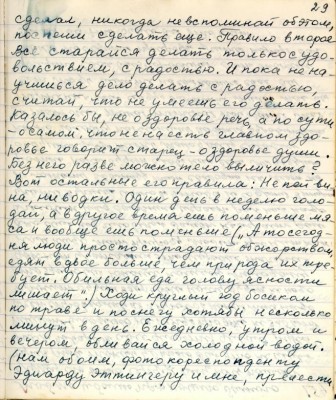 29
сделал, никогда не вспоминай об этом,
поспеши сделать еще. Правило второе
все старайся делать только с удо-
вольствием, с радостью. И пока не на-
учишься дело делать с радостью,
считай, что не умеешь его делать.
Казалось бы, не о здоровье речь, а по сути
– о самом, что не на есть главном здо-
ровье говорит старец – о здоровье души.
Без него разве можно тело вылечить?
Вот остальные его правила: Не пей ви-
на, ни водки. Один день в неделю голо-
дай, а в другое время ешь поменьше мя-
са и вообще ешь поменьше („А то сегод-
ня люди просто страдают обжорством,
едят вдвое больше, чем природа их тре-
бует. Обильная еда голову ясности
лишает".) Ходи круглый год босиком
по траве и по снегу хотябы несколько
минут в день. Ежедневно, утром и
вечером, обливайся холодной водой.
(нам обоим, фотокореспонденту
Эдуарду Эттингеру и мне, привести